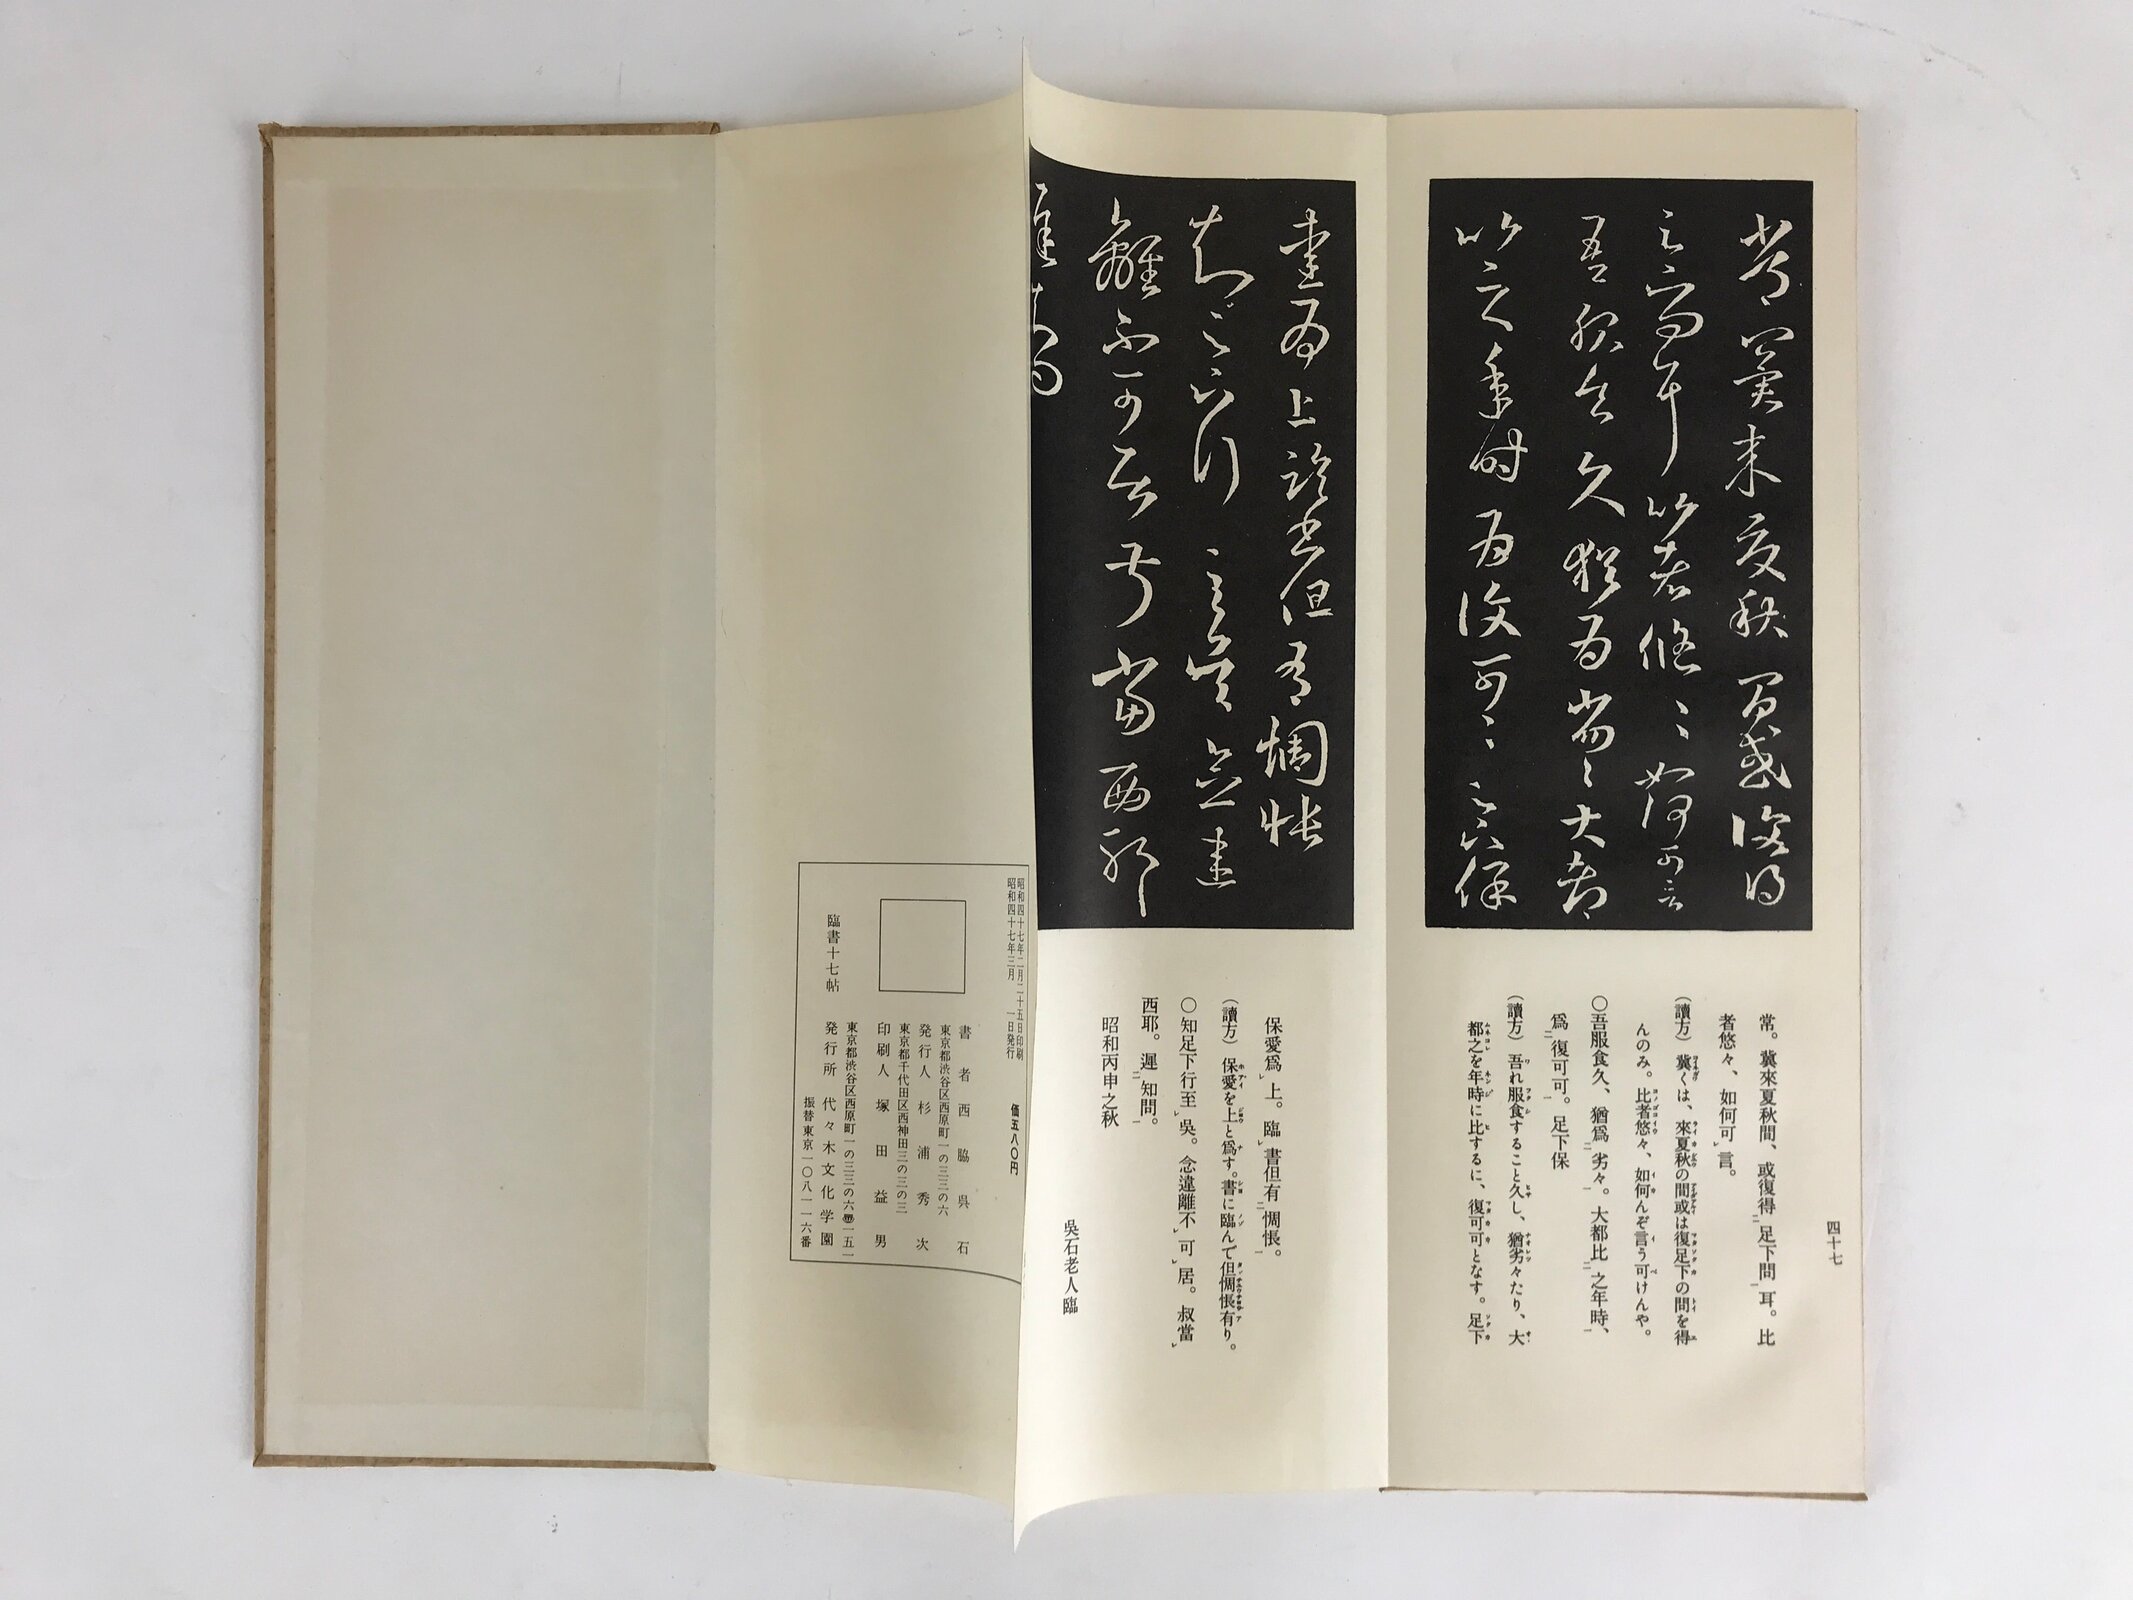 常冀来夏秋間或復得
足下問耳比者悠々如何可言
吾服食久猶為劣々大都
比之年時為復可々足下保
愛為上臨書但有惆悵
知足下行至呉念違
離不可居叔當西耶
遲知問
四十七
常。冀來夏秋間、或復得足下問耳。比
者悠々、如何可言。
(讀方) 冀くは、來夏秋の間或は復足下の問を得
んのみ。比者悠々、如何んぞ言う可けんや。
〇吾服食久、猶爲劣々。大都比之年時、
爲復可可。足下保
(讀方) 吾れ服食すること久し、猶劣々たり、大
都之を年時に比するに、復可可となす。足下
保愛爲上。臨書但有惆悵。
(讀方) 保愛を上と爲す。書に臨んで但惆悵有り。
〇知足下行至吳。念違離不可居。叔當
西耶。遲知問。
昭和丙申之秋
吳石老人臨
昭和四十七年二月二十五日印刷
昭和四十七年三月一日発行
価五八〇円
書者 西脇呉石
東京都渋谷区西原町一の三三の六
発行人 杉浦秀次
東京都千代田区西神田三の三の三
印刷人 塚田益男
東京都渋谷区西原町一の三三の六㊞一五一
発行所 代々木文化学園
振替東京一〇八一一六番
臨書十七帖